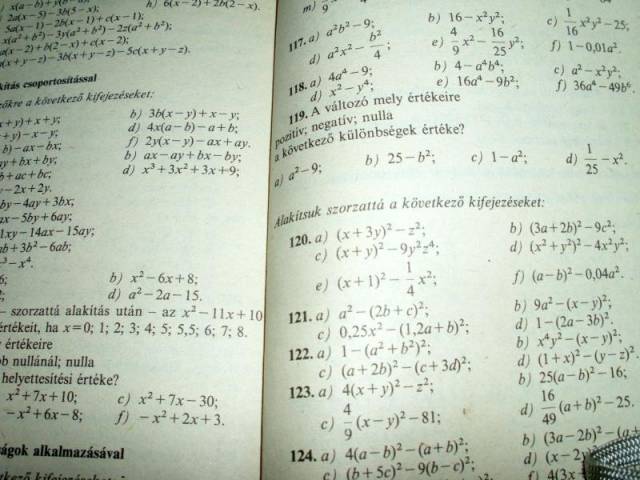 x(a−b)+y(b−a);
h) 6(x−2)+2b(2−x).
2a(x−5)−3b(5−x);
5a(x−1)−2b(x−1)+c(x−1);
x(a²+b²)−3y(a²+b²)−2z(a²+b²);
a(x−2)+b(2−x)+c(x−2);
a(x+y−z)−3b(x+y−z)−5c(x+y−z).
kítás csoportosítással
zőkre a következő kifejezéseket:
x+y)+x+y;
b) 3b(x−y)+x−y;
+y)−x−y;
d) 4x(a−b)−a+b;
−b)−ax−bx;
f) 2y(x−y)−ax+ay.
ay+bx+by;
b) ax−ay+bx−by;
b+ac+bc;
d) x³+3x²+3x+9;
−2x+2y.
by−4ay+3bx;
ax−5by+6ay;
1xy−14ax−15ay;
ab+3b²−6ab;
³−x⁴.
6;
b) x²−6x+8;
d) a²−2a−15.
– szorzattá alakítás után – az x²−11x+10
értékeit, ha x=0; 1; 2; 3; 4; 5; 5,5; 6; 7; 8.
értékeire
bb nullánál; nulla
helyettesítési értéke?
x²+7x+10;
c) x²+7x−30;
−x²+6x−8;
f) −x²+2x+3.
ágok alkalmazásával
tkező kifejezéseket:
m)
9
117. a) a²b²−9;
b) 16−x²y²;
c) 1/16 x²y²−25;
d) a²x²−b²/4;
e) 4/9 x²−16/25 y²;
f) 1−0,01a².
118. a) 4a⁴−9;
b) 4−a⁴b⁴;
c) a²−x²y²;
d) x²−y⁴;
e) 16a⁴−9b²;
f) 36a⁴−49b⁶.
119. A változó mely értékeire
pozitív; negatív; nulla
a következő különbségek értéke?
a) a²−9;
b) 25−b²;
c) 1−a²;
d) 1/25−x².
Alakítsuk szorzattá a következő kifejezéseket:
120. a) (x+3y)²−z²;
b) (3a+2b)²−9c²;
c) (x+y)²−9y²z⁴;
d) (x²+y²)²−4x²y²;
e) (x+1)²−1/4 x²;
f) (a−b)²−0,04a².
121. a) a²−(2b+c)²;
b) 9a²−(x−y)²;
c) 0,25x²−(1,2a+b)²;
d) 1−(2a−3b)².
122. a) 1−(a²+b²)²;
b) x⁴y²−(x−y)²;
c) (a+2b)²−(c+3d)²;
d) (1+x)²−(y−z)².
123. a) 4(x+y)²−z²;
b) 25(a−b)²−16;
c) 4/9 (x−y)²−81;
d) 16/49 (a+b)²−25.
124. a) 4(a−b)²−(a+b)²;
b) (3a−2b)²−(a+
c) (b+5c)²−9(b−c)²;
d) (x−2y
f) 4(3x+